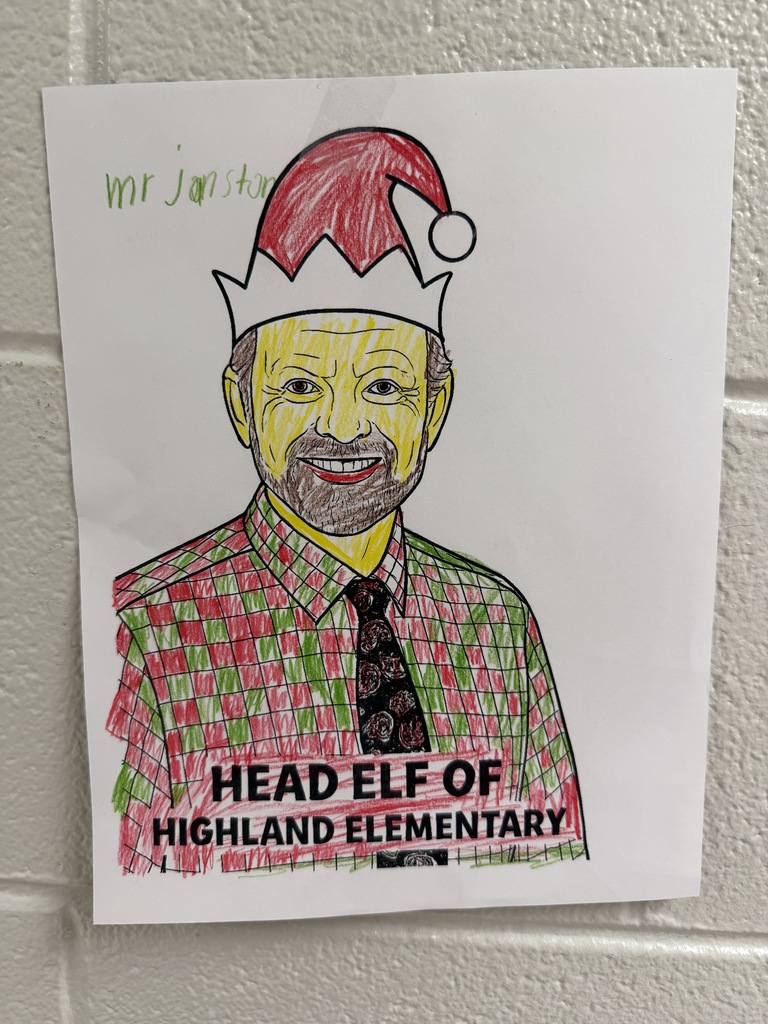 mr janston
HEAD ELF OF
HIGHLAND ELEMENTARY